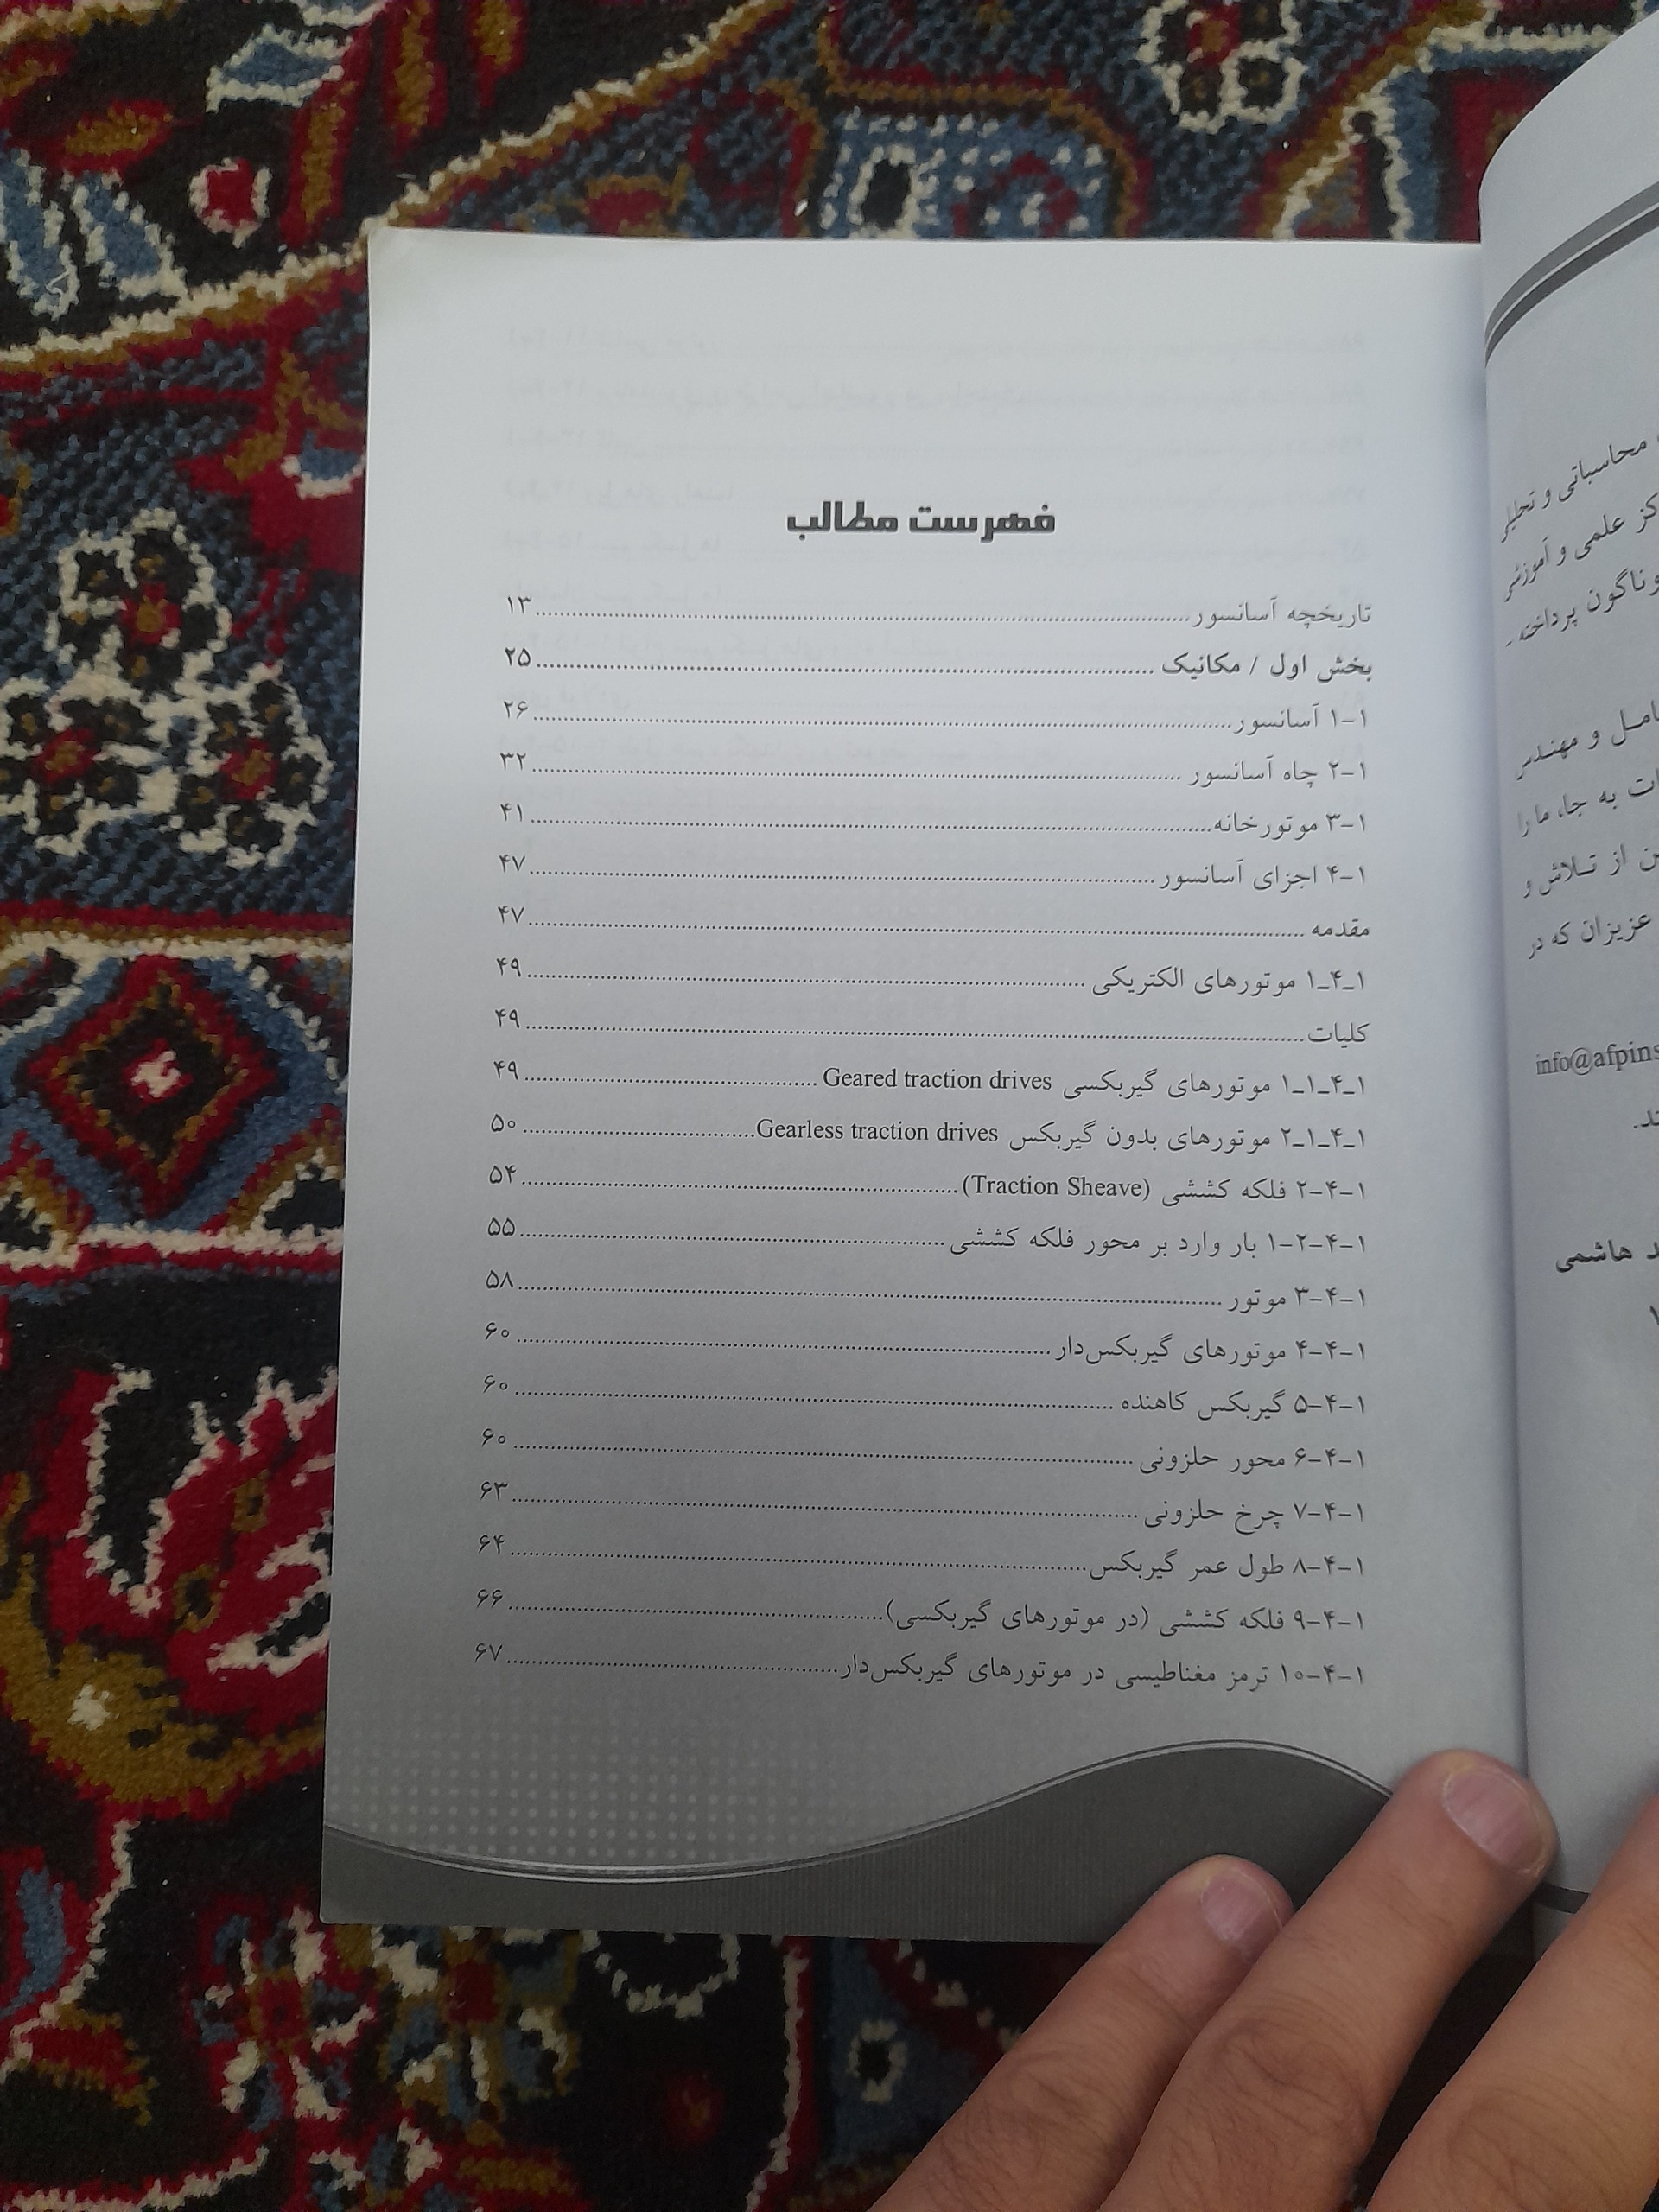 فهرست مطالب
تاریخچه آسانسور ۱۳
بخش اول / مکانیک ۲۵
۱-۱ آسانسور ۲۶
۱-۲ چاه آسانسور ۳۲
۱-۳ موتورخانه ۴۱
۱-۴ اجزای آسانسور ۴۷
مقدمه ۴۷
۱_۴_۱ موتورهای الکتریکی ۴۹
کلیات ۴۹
۱_۴_۱_۱ موتورهای گیربکسی Geared traction drives ۴۹
۱_۴_۱_۲ موتورهای بدون گیربکس Gearless traction drives ۵۰
۱-۴-۲ فلکه کششی (Traction Sheave) ۵۴
۱-۴-۲-۱ بار وارد بر محور فلکه کششی ۵۵
۱-۴-۳ موتور ۵۸
۱-۴-۴ موتورهای گیربکس‌دار ۶۰
۱-۴-۵ گیربکس کاهنده ۶۰
۱-۴-۶ محور حلزونی ۶۰
۱-۴-۷ چرخ حلزونی ۶۳
۱-۴-۸ طول عمر گیربکس ۶۴
۱-۴-۹ فلکه کششی (در موتورهای گیربکسی) ۶۶
۱-۴-۱۰ ترمز مغناطیسی در موتورهای گیربکس‌دار ۶۷
محاسباتی و تحلیلی
علمی و آموزشی
پرداخته
و مهندس
به جا، ما را
از تلاش و
عزیزان که در
info@afpins
هاشمی